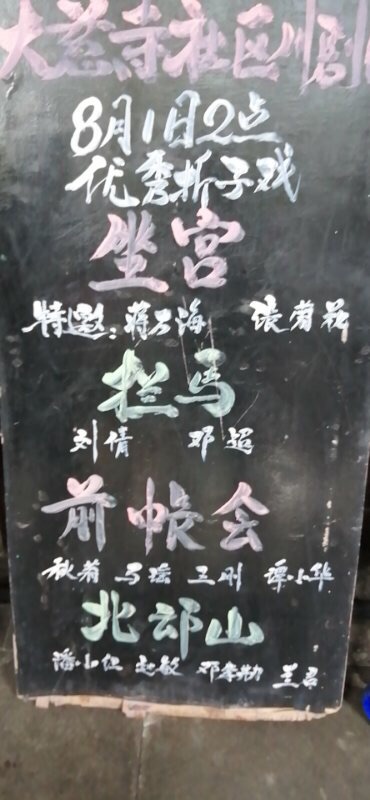 大慈寺社区川剧
8月1日2点
优秀折子戏
坐宫
特邀：蒋工海 张菊花
拦马
刘倩 邓超
前帐会
秋菊 马瑶 王刚 谭小华
北邙山
潘小仁 赵敏 邓孝勤 兰君